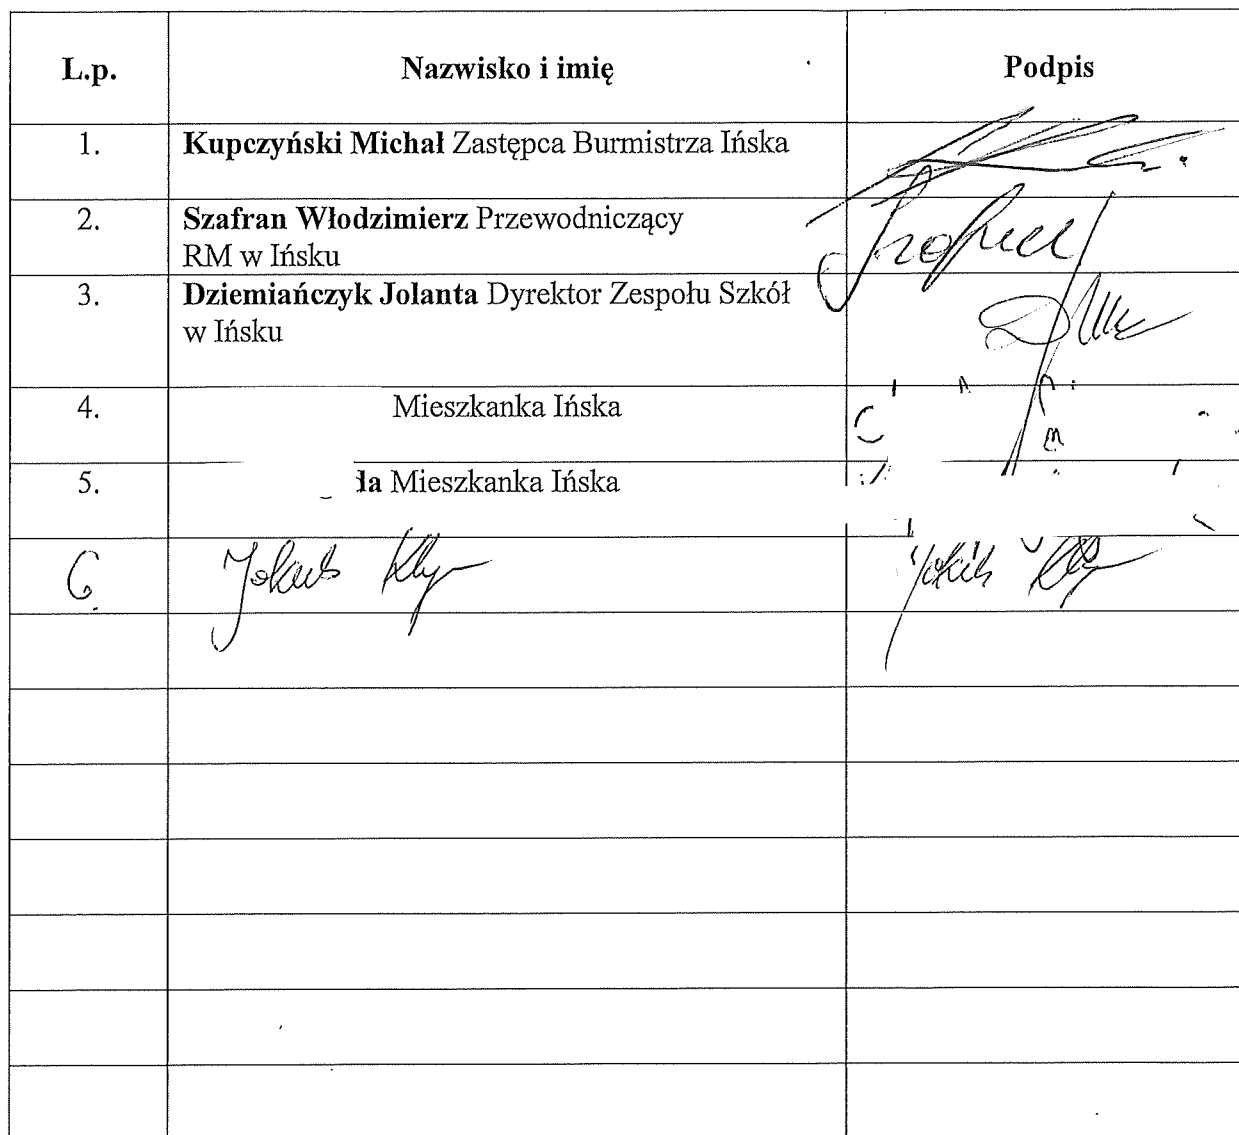 L.p. Nazwisko i imię Podpis
1. Kupczyński Michał Zastępca Burmistrza Ińska
2. Szafran Włodzimierz Przewodniczący
RM w Ińsku
3. Dziemiańczyk Jolanta Dyrektor Zespołu Szkół
w Ińsku
4. Mieszkanka Ińska
5. Mieszkanka Ińska
6.